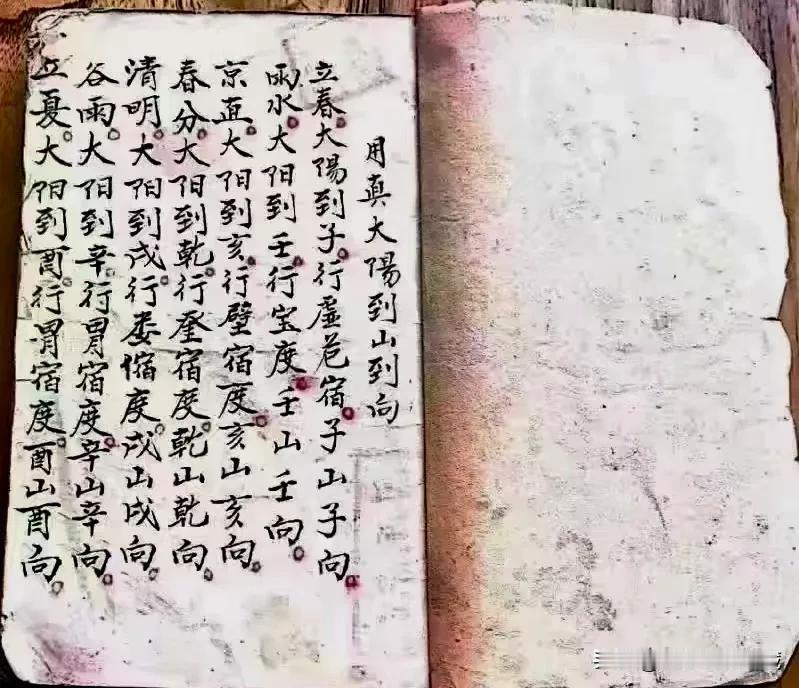 用真大陽到山到向
立春大陽到子行虛危宿子山子向
雨水大阳到壬行宝度壬山壬向
京直大阳到亥行壁宿度亥山亥向
春分大阳到乾行奎宿度乾山乾向
清明大阳到戍行娄宿度戍山戍向
谷雨大阳到辛行胃宿度辛山辛向
立夏大阳到酉行胃宿度酉山酉向